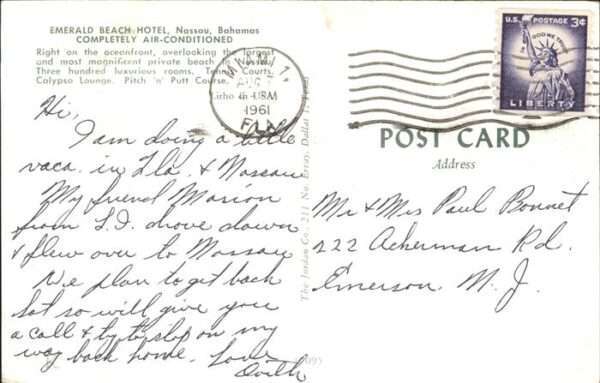 EMERALD BEACH HOTEL, Nassau, Bahamas
COMPLETELY AIR-CONDITIONED
Right on the oceanfront, overlooking the largest
and most magnificent private beach in Nassau.
Three hundred luxurious rooms. Tennis Courts.
Calypso Lounge. Pitch 'n' Putt Course.
Litho in USA
AUG
1961
FLA
U.S. POSTAGE 3¢
IN GOD WE TRUST
LIBERTY
POST CARD
Address
Hi,
I am doing a little
vaca. in Fla. & Nassau
My friend Marion
from L.I. drove down
& flew over to Nassau
We plan to get back
Sat so will give you
a call & try to stop on my
way back home. Love
Mr & Mrs Paul Bonnet
222 Ackerman Rd.
Emerson N. J.
The Jordan Co., 211 No. Ervay, Dallas 1, Texas